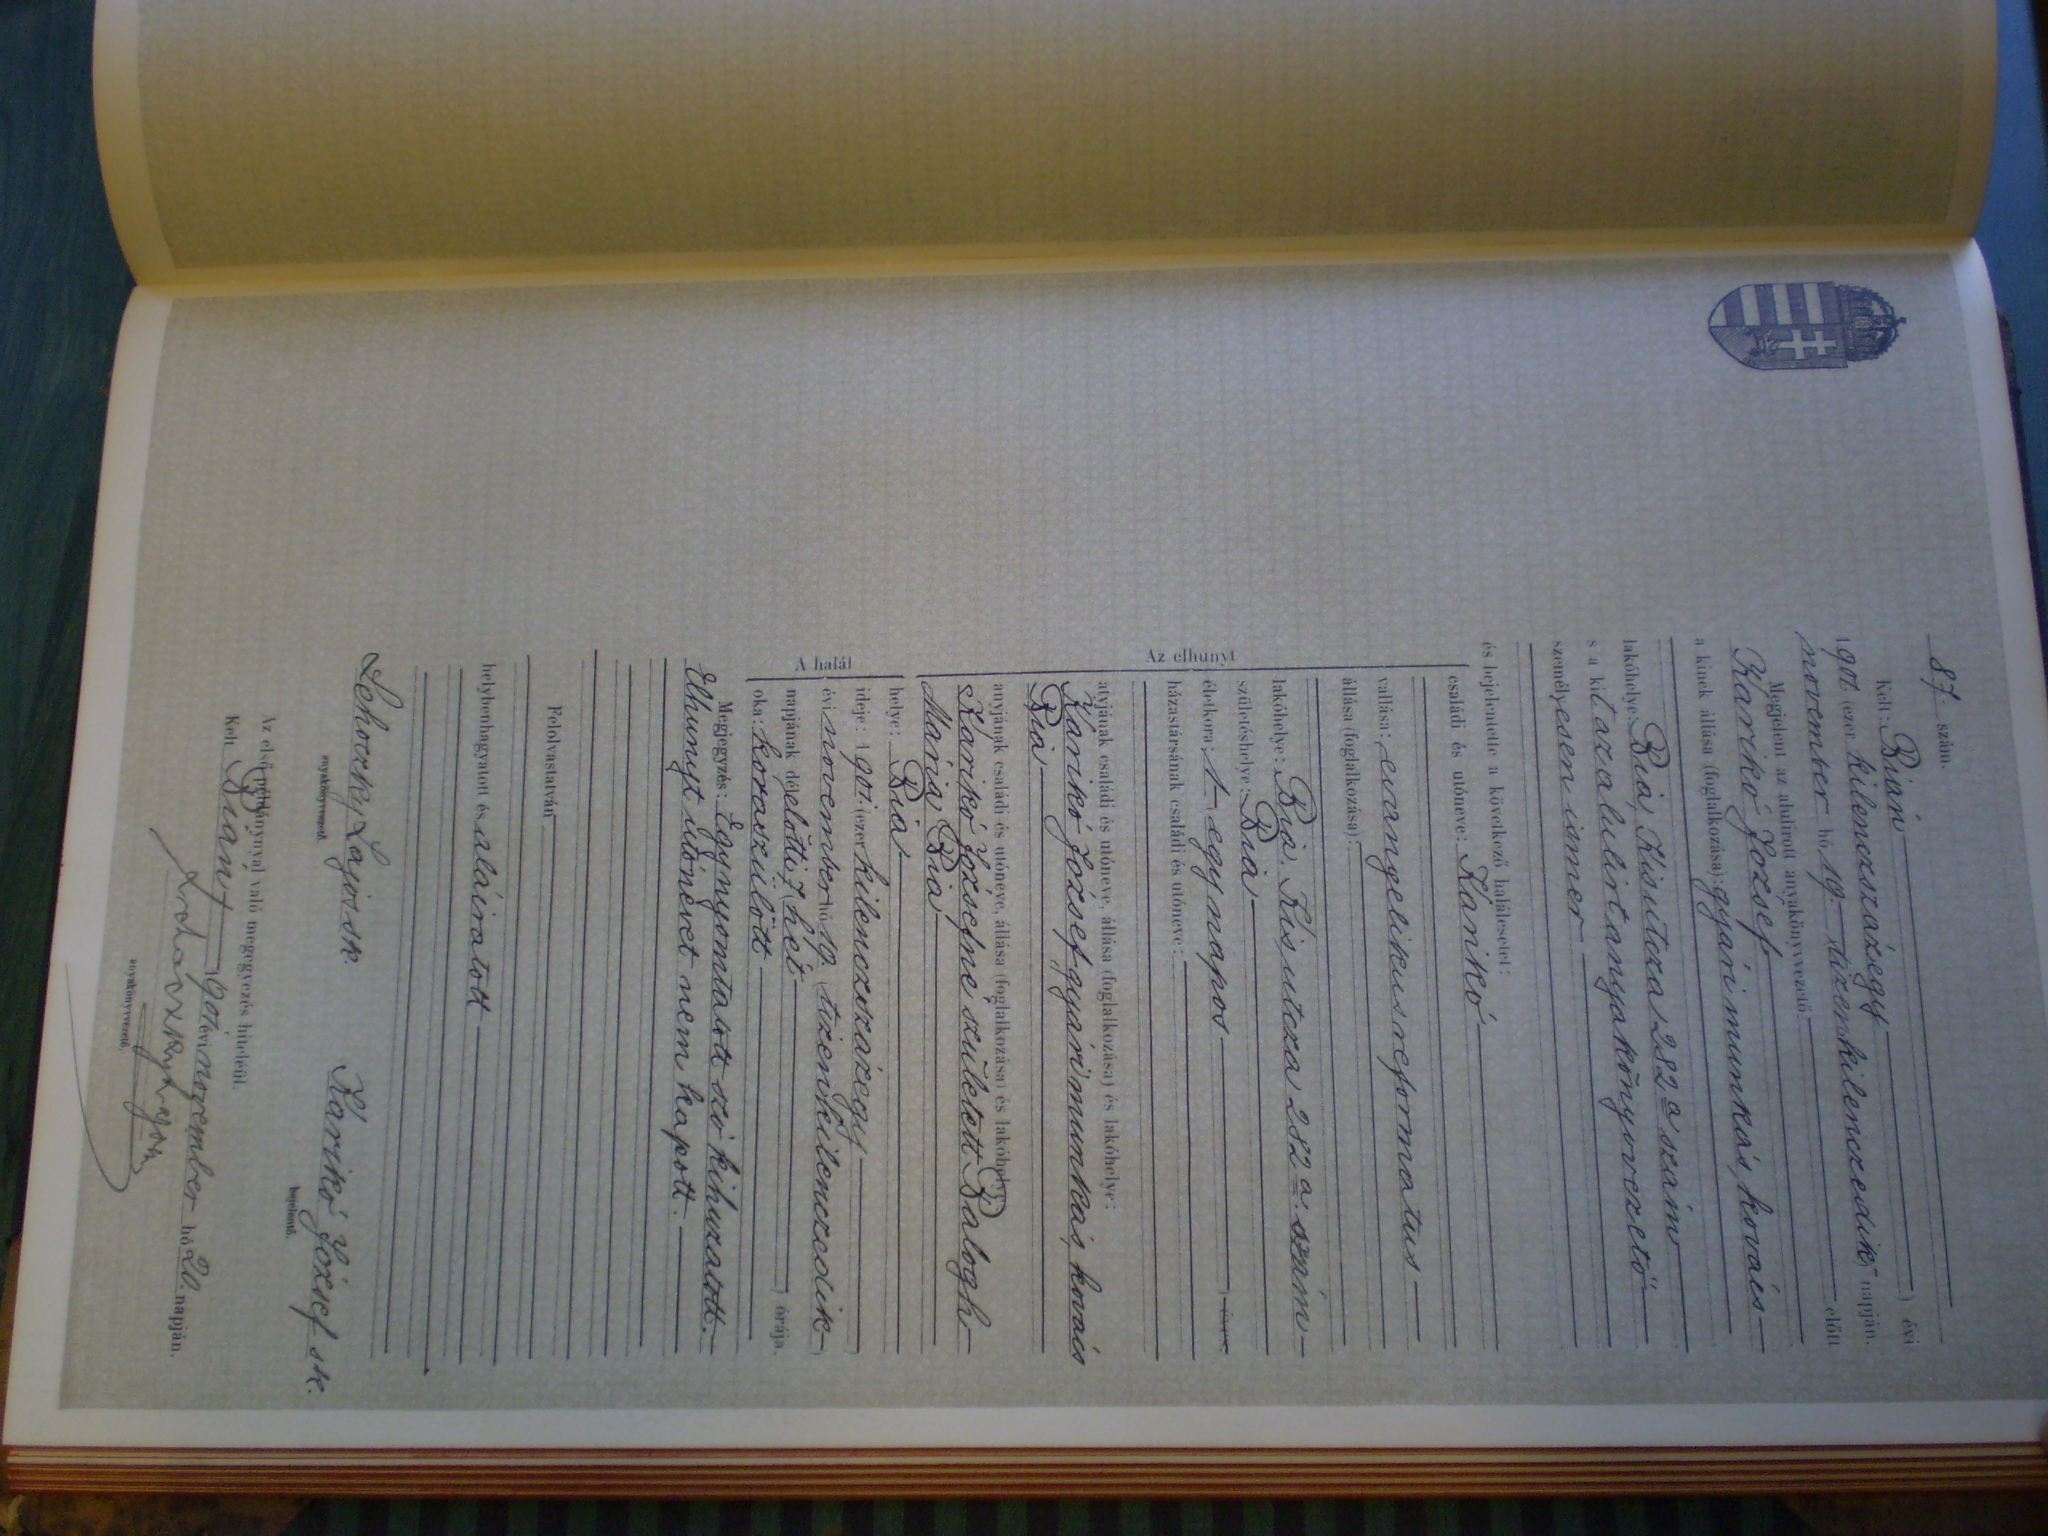 87. szám.
Kelt: Bián ) évi
1901. (ezer kilenczszázegy
november hó 19. (tizenkilenczedik) napján.
Megjelent az alulirott anyakönyvvezető előtt
Karikó József
a kinek állása (foglalkozása) gyári munkás, kovács
lakóhelye: Bia, Kis utcza 282 a szám
s a kit az alulirt anyakönyvvezető
személyesen ismer
és bejelentette a következő halálesetet:
Az elhunyt
családi és utóneve: Karikó
vallása: evangelikus reformatus
állása (foglalkozása):
lakóhelye: Bia. Kis utcza 282 a. szám
születéshelye: Bia
életkora: 1 egy napos ) éves
házastársának családi és utóneve:
atyjának családi és utóneve, állása (foglalkozása) és lakóhelye:
Karikó József gyári munkás, kovács
Bia
anyjának családi és utóneve, állása (foglalkozása) és lakóhelye:
Karikó Józsefné született Balogh
Mária Bia
A halál
helye: Bia
ideje: 1901. (ezer kilenczszázegy
évi november hó 19. (tizenkilenczedik)
napjának dél előtti 7 (hét ) órája.
oka: koraszülött
Megjegyzés: Egy nyomtatott szó kihuzatott.
Elhunyt utónevet nem kapott.
Felolvastatván
helybenhagyatott és aláíratott
Lehoczky Lajos sk.
anyakönyvvezető.
Karikó József sk.
bejelentő.
Az első példánynyal való megegyezés hiteléül.
Kelt Bián, 1901 évi november hó 20. napján.
Lehoczky Lajos
anyakönyvvezető.